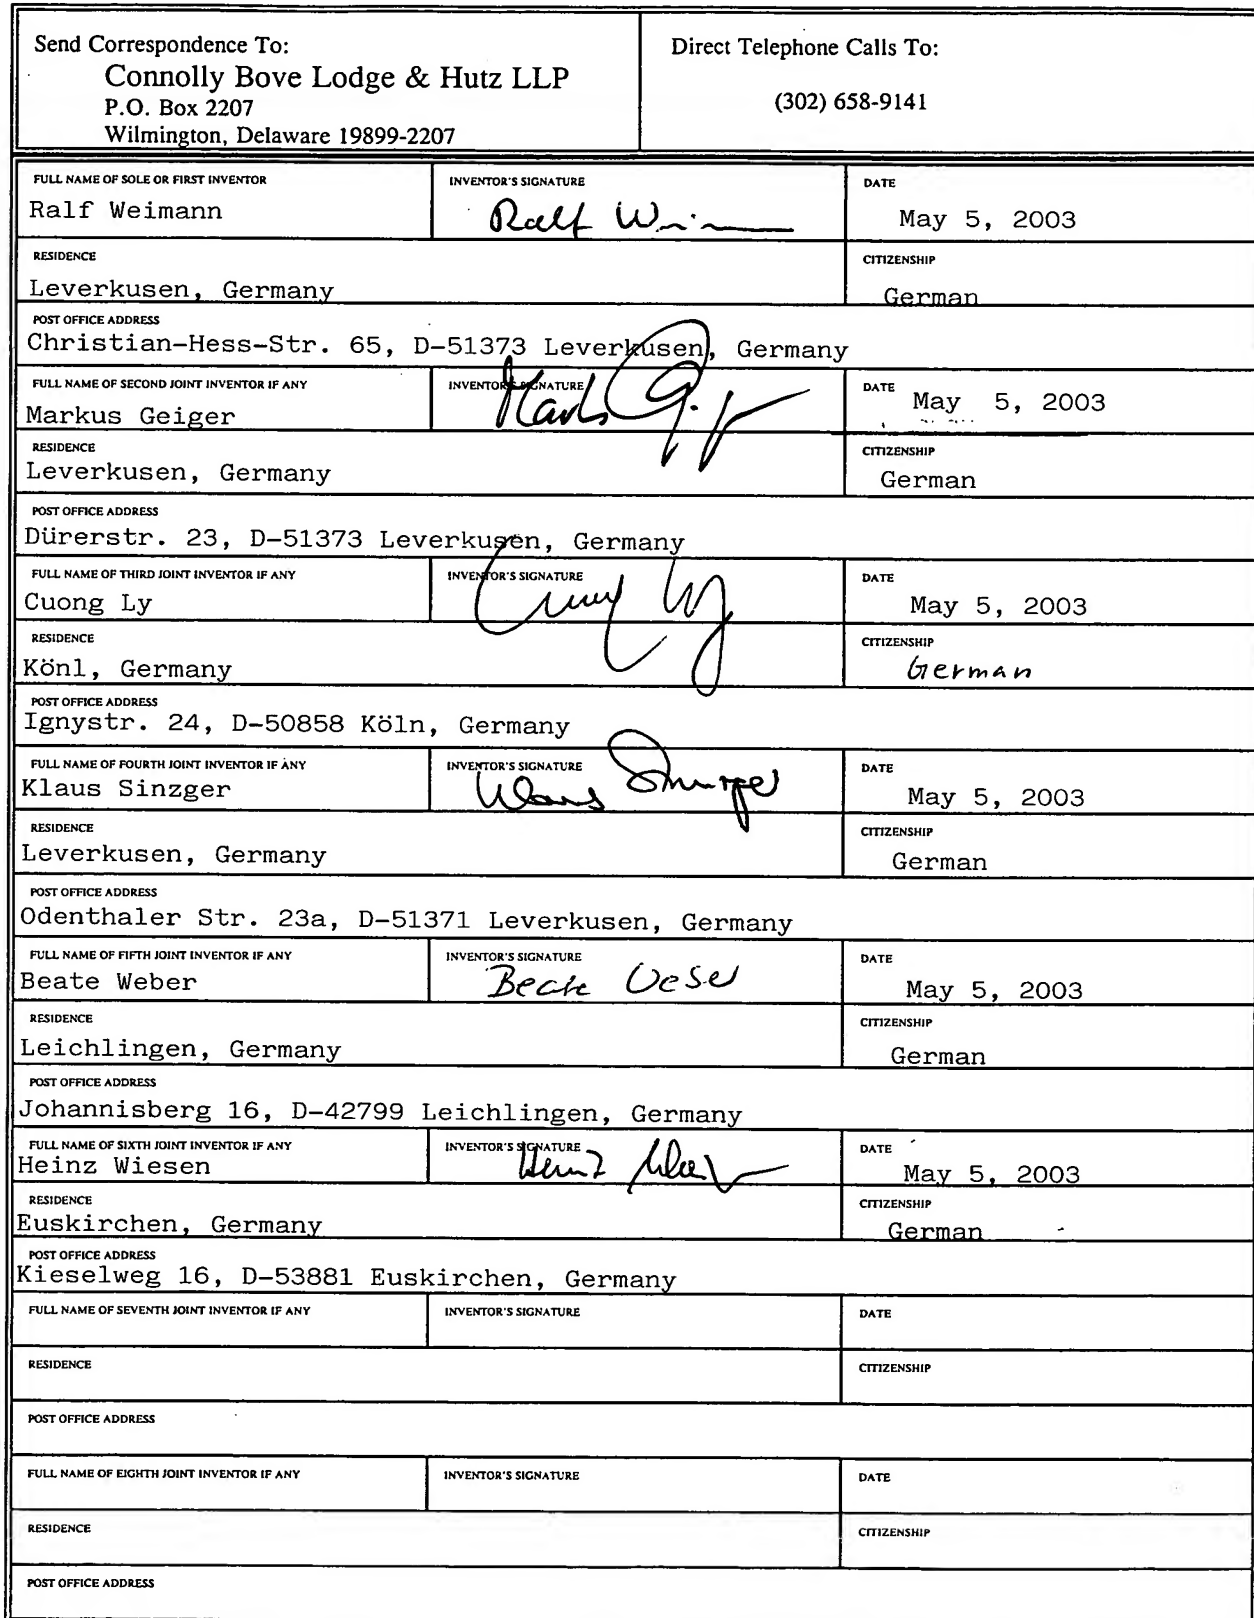 Send Correspondence To:
Connolly Bove Lodge & Hutz LLP
P.O. Box 2207
Wilmington, Delaware 19899-2207
Direct Telephone Calls To:
(302) 658-9141
FULL NAME OF SOLE OR FIRST INVENTOR
Ralf Weimann
INVENTOR'S SIGNATURE
Ralf
DATE
May 5, 2003
RESIDENCE
Leverkusen, Germany
CITIZENSHIP
German
POST OFFICE ADDRESS
Christian-Hess-Str. 65, D-51373 Leverkusen, Germany
FULL NAME OF SECOND JOINT INVENTOR IF ANY
Markus Geiger
INVENTOR'S SIGNATURE
DATE
May 5, 2003
RESIDENCE
Leverkusen, Germany
CITIZENSHIP
German
POST OFFICE ADDRESS
Dürerstr. 23, D-51373 Leverkusen, Germany
FULL NAME OF THIRD JOINT INVENTOR IF ANY
Cuong Ly
INVENTOR'S SIGNATURE
DATE
May 5, 2003
RESIDENCE
Könl, Germany
CITIZENSHIP
German
POST OFFICE ADDRESS
Ignystr. 24, D-50858 Köln, Germany
FULL NAME OF FOURTH JOINT INVENTOR IF ANY
Klaus Sinzger
INVENTOR'S SIGNATURE
Klaus Sinzger
DATE
May 5, 2003
RESIDENCE
Leverkusen, Germany
CITIZENSHIP
German
POST OFFICE ADDRESS
Odenthaler Str. 23a, D-51371 Leverkusen, Germany
FULL NAME OF FIFTH JOINT INVENTOR IF ANY
Beate Weber
INVENTOR'S SIGNATURE
Beate Weber
DATE
May 5, 2003
RESIDENCE
Leichlingen, Germany
CITIZENSHIP
German
POST OFFICE ADDRESS
Johannisberg 16, D-42799 Leichlingen, Germany
FULL NAME OF SIXTH JOINT INVENTOR IF ANY
Heinz Wiesen
INVENTOR'S SIGNATURE
Heinz
DATE
May 5, 2003
RESIDENCE
Euskirchen, Germany
CITIZENSHIP
German
POST OFFICE ADDRESS
Kieselweg 16, D-53881 Euskirchen, Germany
FULL NAME OF SEVENTH JOINT INVENTOR IF ANY
INVENTOR'S SIGNATURE
DATE
RESIDENCE
CITIZENSHIP
POST OFFICE ADDRESS
FULL NAME OF EIGHTH JOINT INVENTOR IF ANY
INVENTOR'S SIGNATURE
DATE
RESIDENCE
CITIZENSHIP
POST OFFICE ADDRESS